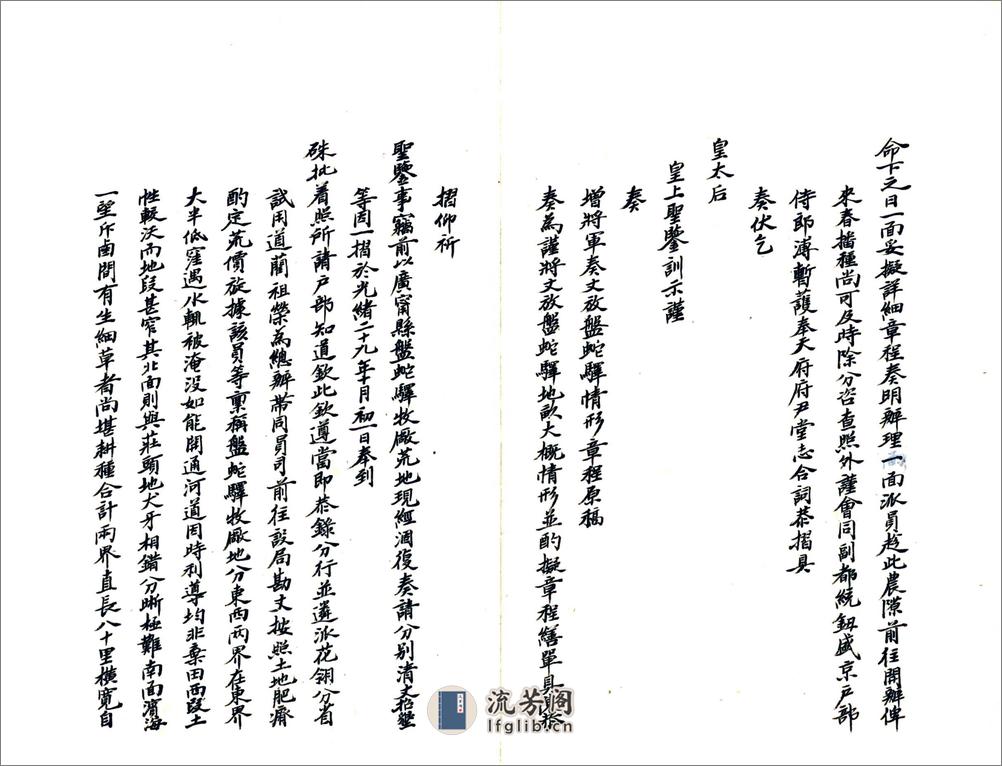 命下之日一面妥擬詳細章程奏明辦理一面派員趁此農隙前往開辦俾
來春播種尚可及時除分咨查照外謹會同副都統鈕盛京戶部
侍郎溥暫護奉天府府尹堂志合詞恭摺具
奏伏乞
皇太后
皇上聖鑒訓示謹
奏
增將軍奏丈放盤蛇驛情形章程原稿
奏為謹將丈放盤蛇驛地畝大概情形並酌擬章程繕單具
摺仰祈
聖鑒事竊前以廣甯縣盤蛇驛牧廠荒地現經涸復奏請分別清丈招墾
等因一摺於光緒二十九年十月初一日奉到
硃批着照所請戶部知道欽此欽遵當即恭錄分行並遴派花翎分省
試用道藺祖榮為總辦帶同員司前往設局勘丈按照土地肥瘠
酌定荒價旋據該員等稟稱盤蛇驛牧廠地分東西兩界在東界
大半低窪遇水輒被淹沒如能開通河道因時利導均非棄田西段土
性較沃而地段甚窄其北面則與莊頭地犬牙相錯分晰極難南面濱海
一望斥鹵間有生細草者尚堪耕種合計兩界直長八十里橫寬自
流芳阁
lfglib.cn